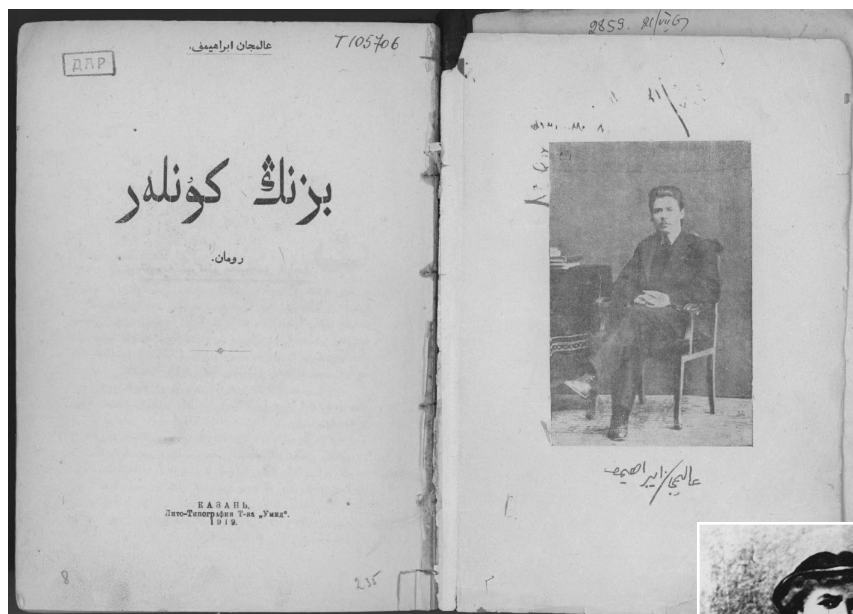 عالمجان ابراهیمف.
Т105706
ДАР
بزنڭ كۈنلەر
رومان.
КАЗАНЬ,
Лито-Типография Т-ва „Умид".
1919.
8
235
2859.
عالیمجان ابراهیمف